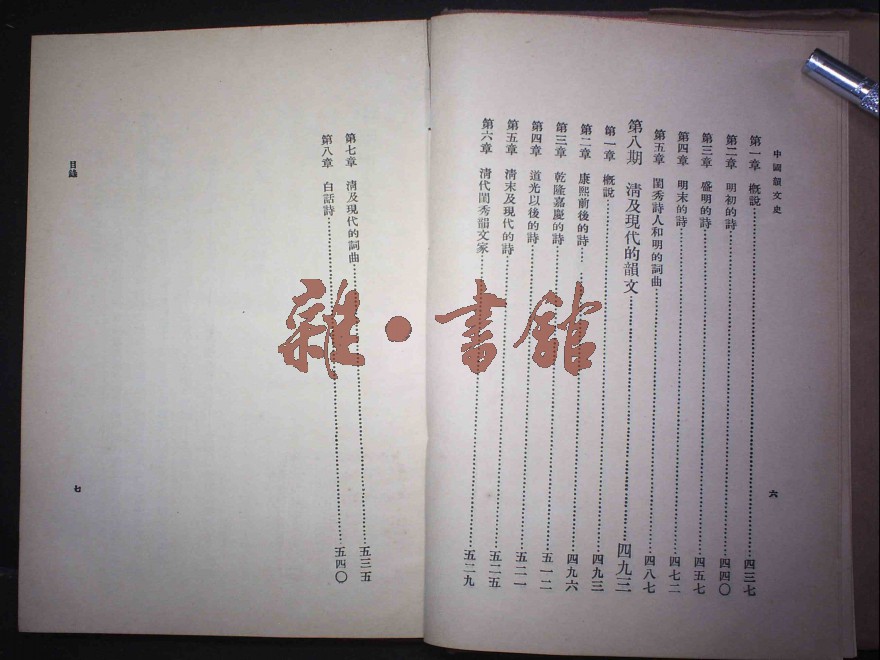 中國韻文史
第一章 概說 四三七
第二章 明初的詩 四四〇
第三章 盛明的詩 四五七
第四章 明末的詩 四七二
第五章 閨秀詩人和明的詞曲 四八七
第八期 淸及現代的韻文 四九三
第一章 概說 四九三
第二章 康熙前後的詩 四九六
第三章 乾隆嘉慶的詩 五一二
第四章 道光以後的詩 五二一
第五章 淸末及現代的詩 五二五
第六章 淸代閨秀韻文家 五二九
六
目錄
第七章 淸及現代的詞曲 五三五
第八章 白話詩 五四〇
七
雜·書館